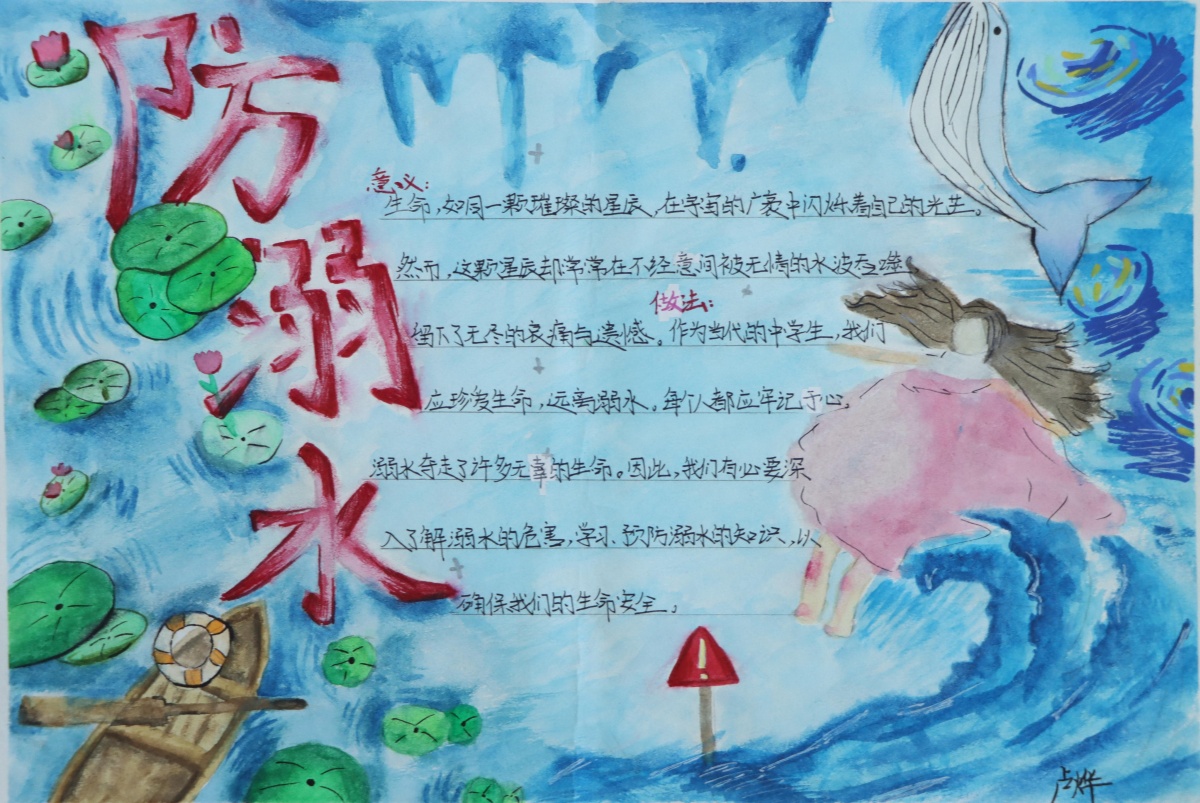 防溺水
意义:
生命,如同一颗璀璨的星辰,在宇宙的广袤中闪烁着自己的光芒。
然而,这颗星辰却常常在不经意间被无情的水波吞噬
做法:
留下了无尽的哀痛与遗憾。作为当代的中学生,我们
应珍爱生命,远离溺水。每个人都应牢记于心,
溺水夺走了许多无辜的生命。因此,我们有必要深
入了解溺水的危害,学习、预防溺水的知识,以
确保我们的生命安全。